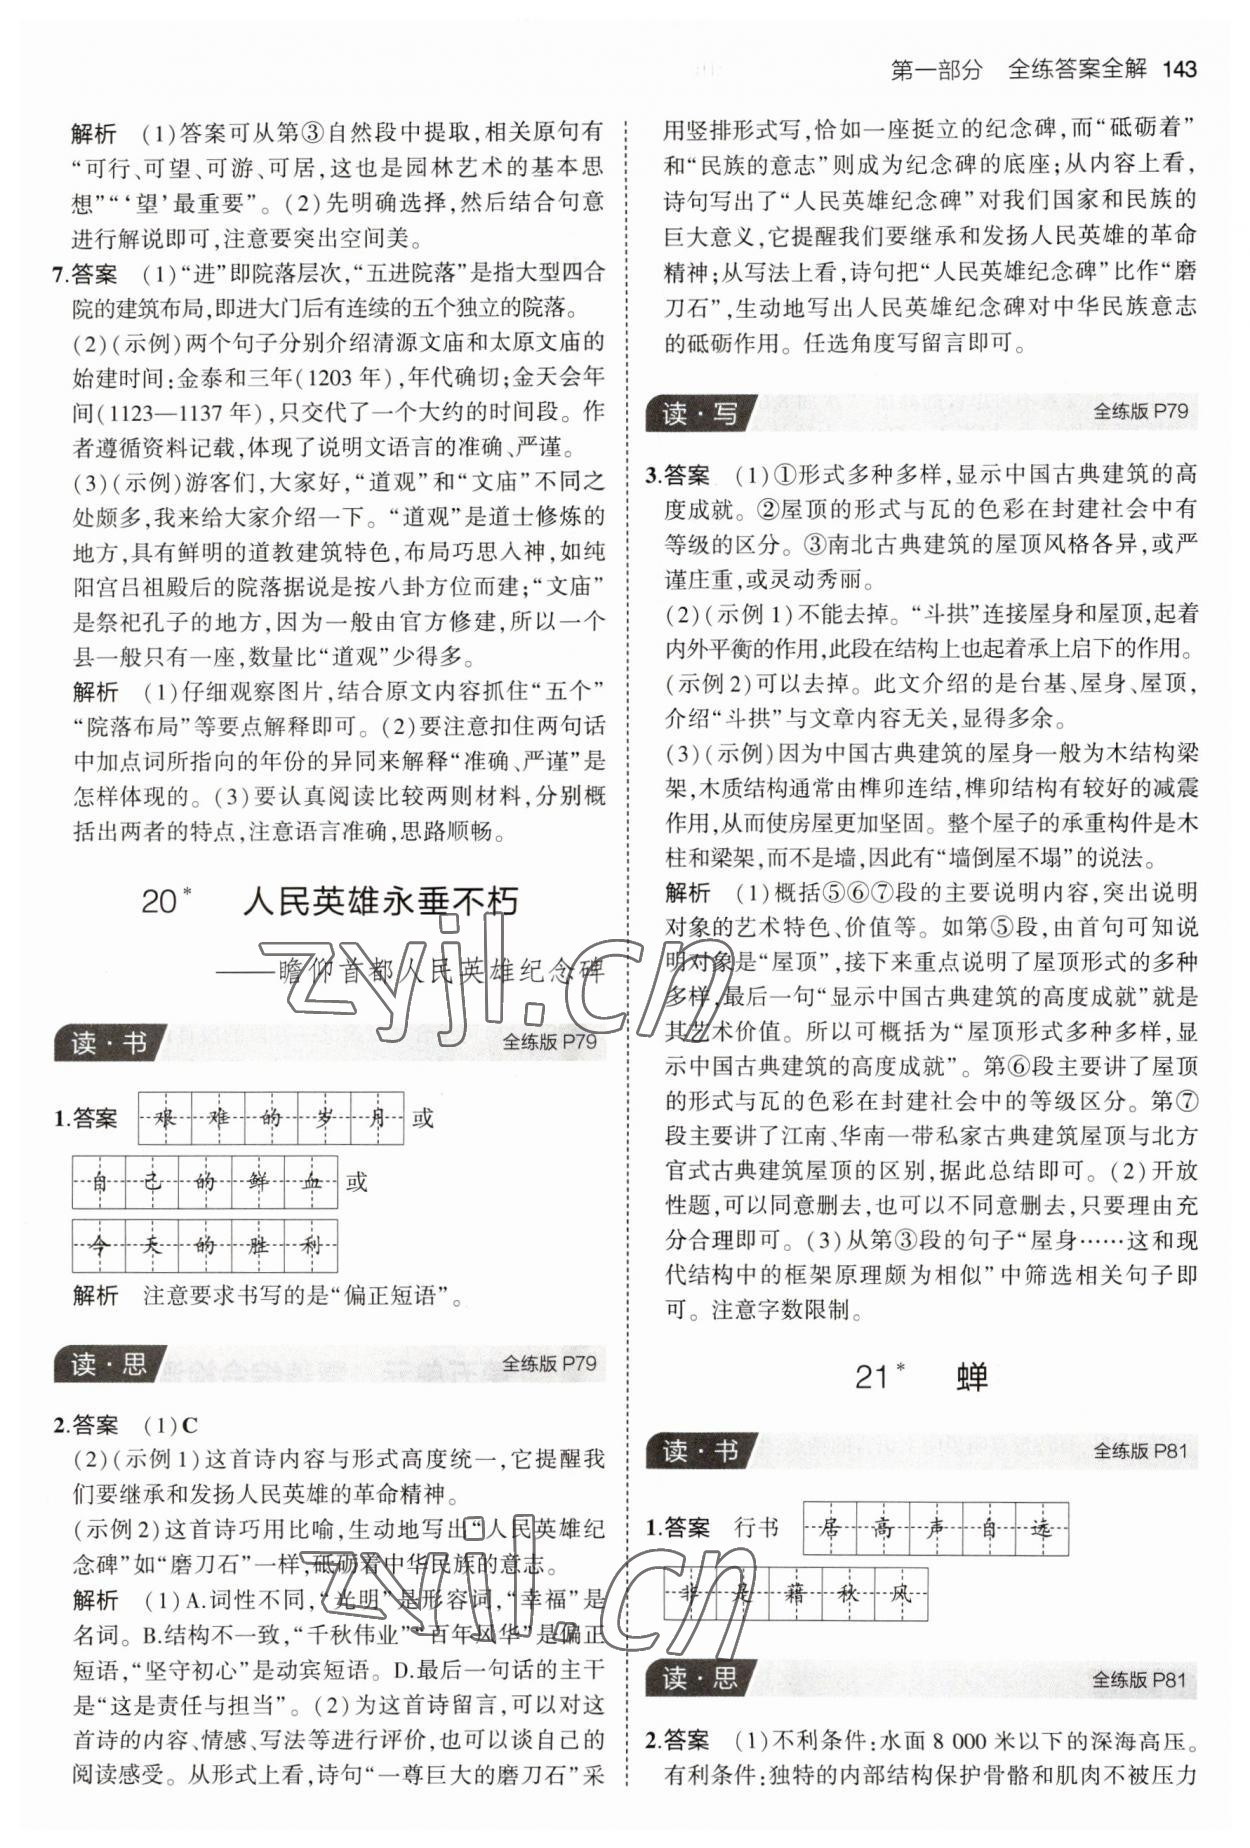 第一部分 全练答案全解 143
解析 (1)答案可从第③自然段中提取,相关原句有
“可行、可望、可游、可居,这也是园林艺术的基本思
想”“‘望’最重要”。(2)先明确选择,然后结合句意
进行解说即可,注意要突出空间美。
7.答案 (1)“进”即院落层次,“五进院落”是指大型四合
院的建筑布局,即进大门后有连续的五个独立的院落。
(2)(示例)两个句子分别介绍清源文庙和太原文庙的
始建时间:金泰和三年(1203 年),年代确切;金天会年
间(1123—1137 年),只交代了一个大约的时间段。作
者遵循资料记载,体现了说明文语言的准确、严谨。
(3)(示例)游客们,大家好,“道观”和“文庙”不同之
处颇多,我来给大家介绍一下。“道观”是道士修炼的
地方,具有鲜明的道教建筑特色,布局巧思入神,如纯
阳宫吕祖殿后的院落据说是按八卦方位而建;“文庙”
是祭祀孔子的地方,因为一般由官方修建,所以一个
县一般只有一座,数量比“道观”少得多。
解析 (1)仔细观察图片,结合原文内容抓住“五个”
“院落布局”等要点解释即可。(2)要注意扣住两句话
中加点词所指向的年份的异同来解释“准确、严谨”是
怎样体现的。(3)要认真阅读比较两则材料,分别概
括出两者的特点,注意语言准确,思路顺畅。
20* 人民英雄永垂不朽
——瞻仰首都人民英雄纪念碑
读·书 全练版 P79
1.答案 艰难的岁月 或
自己的鲜血 或
今天的胜利
解析 注意要求书写的是“偏正短语”。
读·思 全练版 P79
2.答案 (1)C
(2)(示例1)这首诗内容与形式高度统一,它提醒我
们要继承和发扬人民英雄的革命精神。
(示例2)这首诗巧用比喻,生动地写出“人民英雄纪
念碑”如“磨刀石”一样,砥砺着中华民族的意志。
解析 (1)A.词性不同,“光明”是形容词,“幸福”是
名词。B.结构不一致,“千秋伟业”“百年风华”是偏正
短语,“坚守初心”是动宾短语。D.最后一句话的主干
是“这是责任与担当”。(2)为这首诗留言,可以对这
首诗的内容、情感、写法等进行评价,也可以谈自己的
阅读感受。从形式上看,诗句“一尊巨大的磨刀石”采
用竖排形式写,恰如一座挺立的纪念碑,而“砥砺着”
和“民族的意志”则成为纪念碑的底座;从内容上看,
诗句写出了“人民英雄纪念碑”对我们国家和民族的
巨大意义,它提醒我们要继承和发扬人民英雄的革命
精神;从写法上看,诗句把“人民英雄纪念碑”比作“磨
刀石”,生动地写出人民英雄纪念碑对中华民族意志
的砥砺作用。任选角度写留言即可。
读·写 全练版 P79
3.答案 (1)①形式多种多样,显示中国古典建筑的高
度成就。②屋顶的形式与瓦的色彩在封建社会中有
等级的区分。③南北古典建筑的屋顶风格各异,或严
谨庄重,或灵动秀丽。
(2)(示例1)不能去掉。“斗拱”连接屋身和屋顶,起着
内外平衡的作用,此段在结构上也起着承上启下的作用。
(示例2)可以去掉。此文介绍的是台基、屋身、屋顶,
介绍“斗拱”与文章内容无关,显得多余。
(3)(示例)因为中国古典建筑的屋身一般为木结构梁
架,木质结构通常由榫卯连结,榫卯结构有较好的减震
作用,从而使房屋更加坚固。整个屋子的承重构件是木
柱和梁架,而不是墙,因此有“墙倒屋不塌”的说法。
解析 (1)概括⑤⑥⑦段的主要说明内容,突出说明
对象的艺术特色、价值等。如第⑤段,由首句可知说
明对象是“屋顶”,接下来重点说明了屋顶形式的多种
多样,最后一句“显示中国古典建筑的高度成就”就是
其艺术价值。所以可概括为“屋顶形式多种多样,显
示中国古典建筑的高度成就”。第⑥段主要讲了屋顶
的形式与瓦的色彩在封建社会中的等级区分。第⑦
段主要讲了江南、华南一带私家古典建筑屋顶与北方
官式古典建筑屋顶的区别,据此总结即可。(2)开放
性题,可以同意删去,也可以不同意删去,只要理由充
分合理即可。(3)从第③段的句子“屋身……这和现
代结构中的框架原理颇为相似”中筛选相关句子即
可。注意字数限制。
21* 蝉
读·书 全练版 P81
1.答案 行书 居高声自远
非是藉秋风
读·思 全练版 P81
2.答案 (1)不利条件:水面 8 000 米以下的深海高压。
有利条件:独特的内部结构保护骨骼和肌肉不被压力
zyjl.cn
zyjl.cn